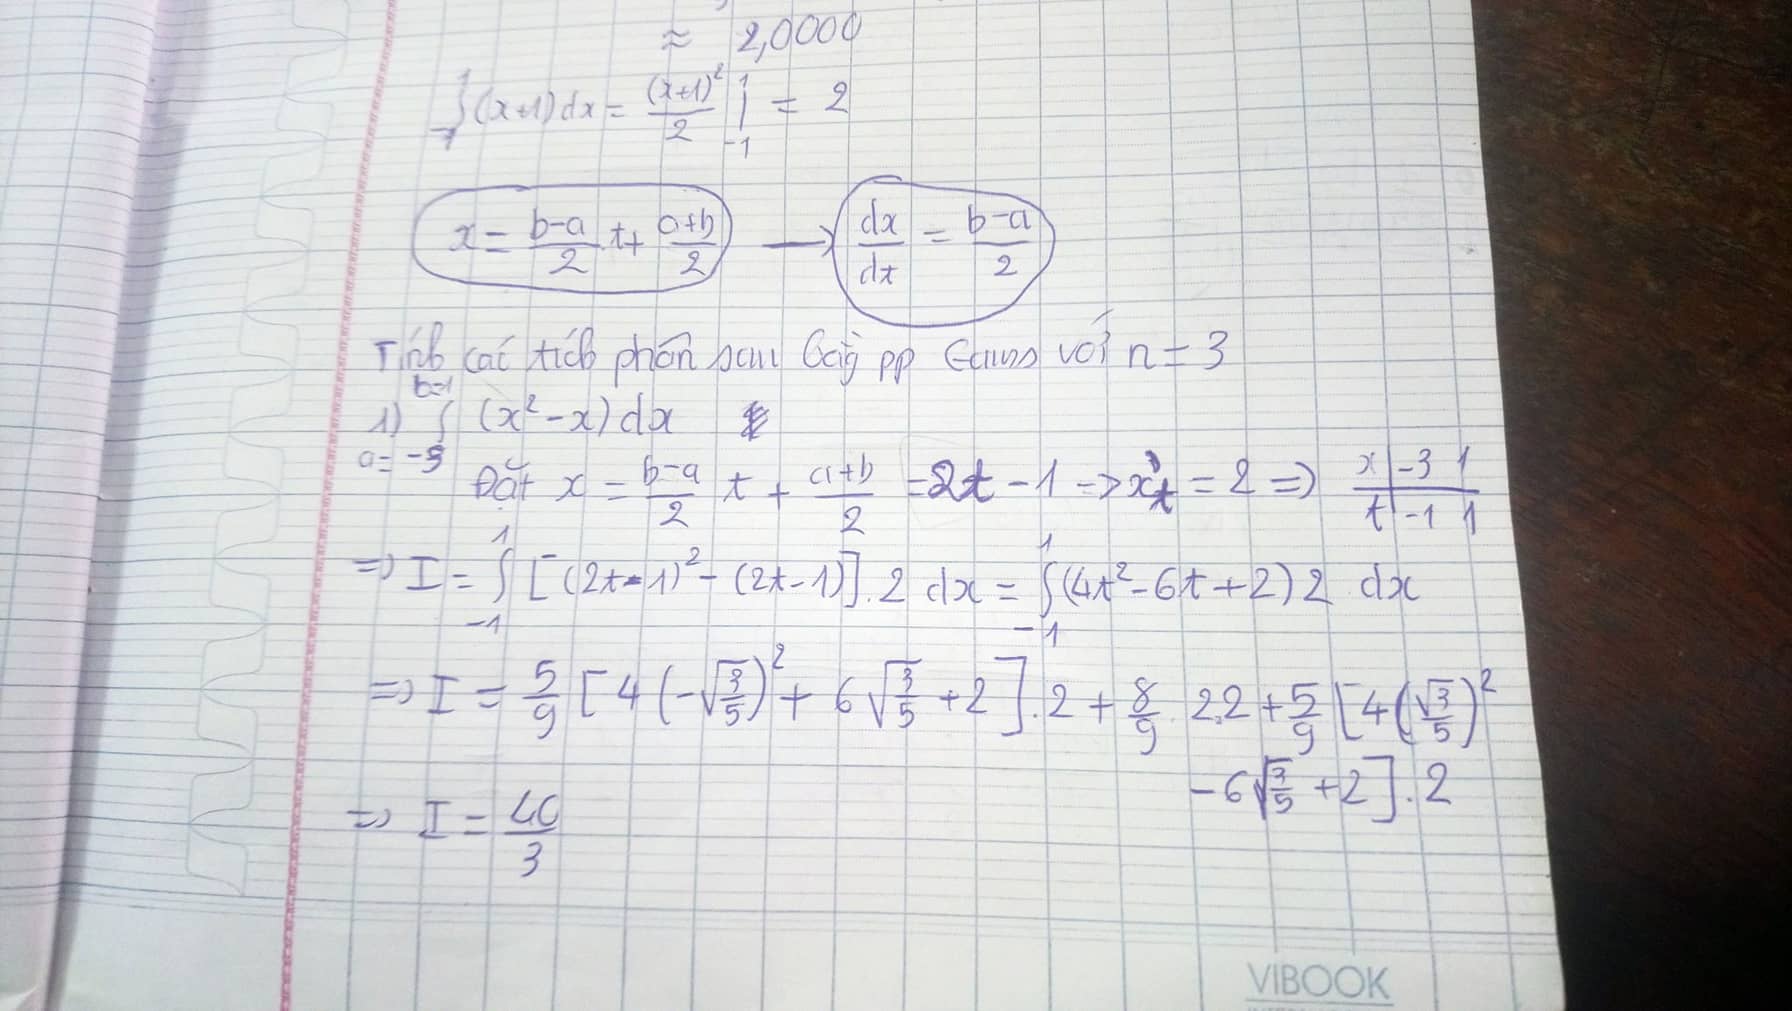 ≈ 2,0000
∫_{-1}^{1} (x+1) dx = \frac{(x+1)^2}{2} |_{-1}^{1} = 2
x = \frac{b-a}{2} . t + \frac{a+b}{2} → \frac{dx}{dt} = \frac{b-a}{2}
Tính các tích phân sau bằg pp Gauss với n = 3
1) ∫_{a=-3}^{b=1} (x² - x) dx
Đặt x = \frac{b-a}{2} t + \frac{a+b}{2} = 2t - 1 => x'_t = 2 => x | -3 1
t | -1 1
=> I = ∫_{-1}^{1} [(2t-1)² - (2t-1)] . 2 dx = ∫_{-1}^{1} (4t² - 6t + 2) 2 dx
=> I = \frac{5}{9} [4(-\sqrt{\frac{3}{5}})² + 6\sqrt{\frac{3}{5}} + 2] . 2 + \frac{8}{9} . 2.2 + \frac{5}{9} [4(\frac{\sqrt{3}}{5})²
- 6\sqrt{\frac{3}{5}} + 2] . 2
=> I = \frac{40}{3}
VIBOOK